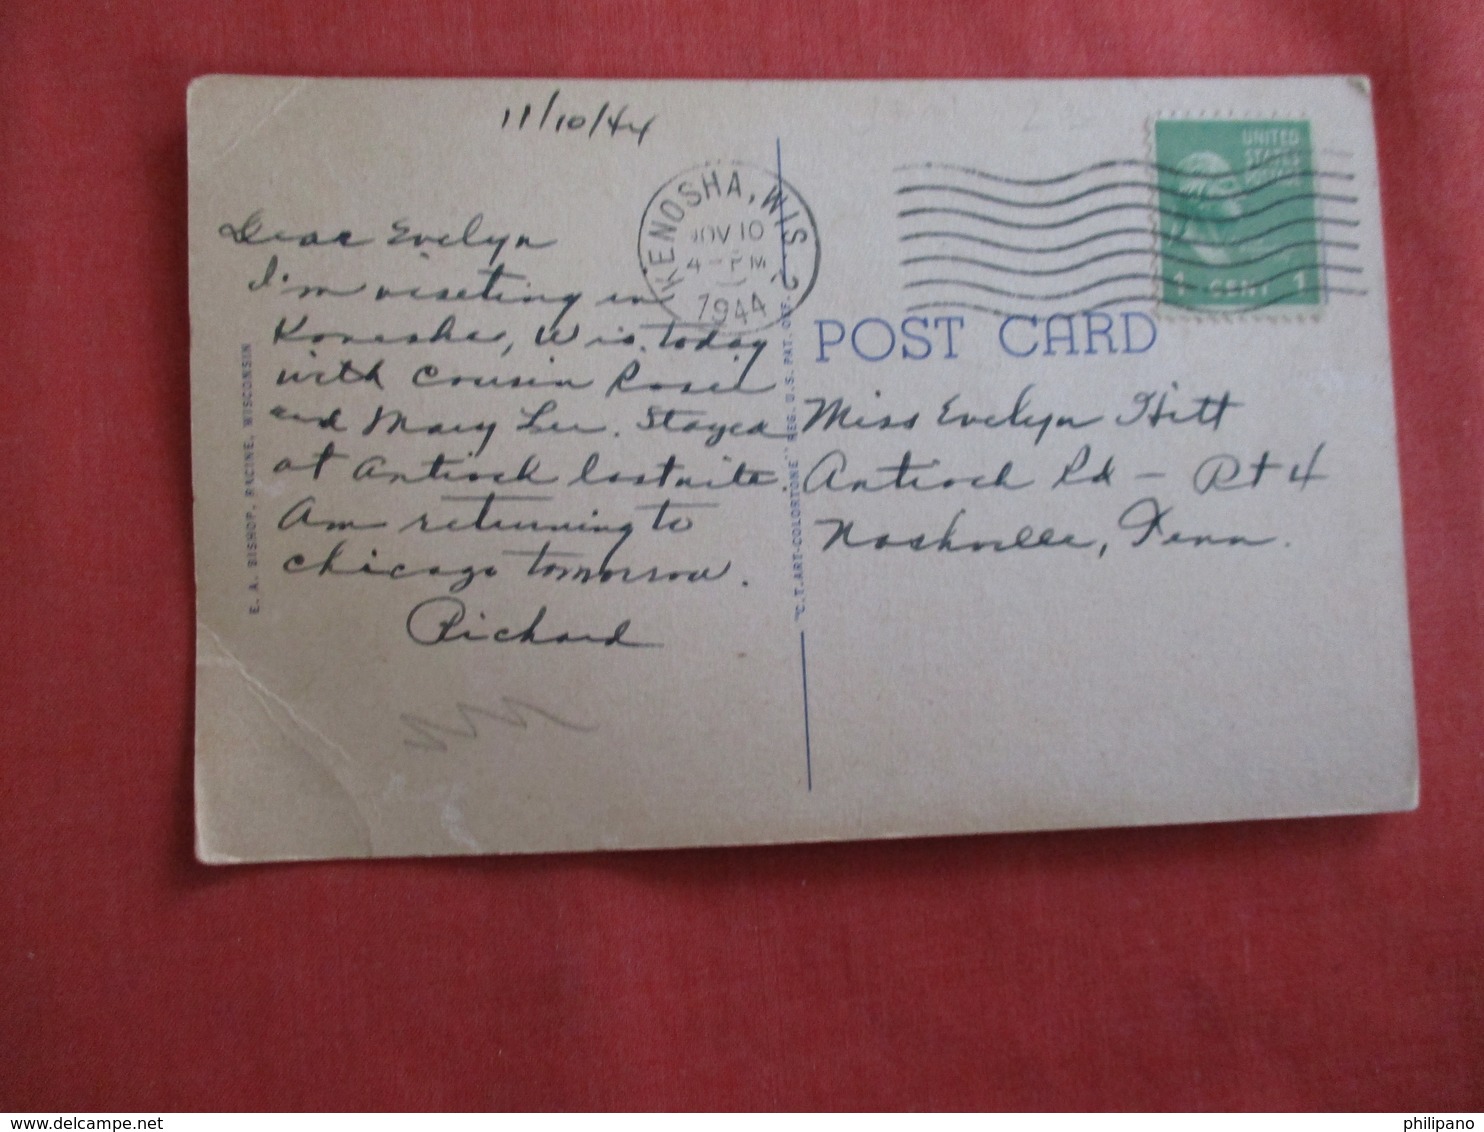 11/10/44
Dear Evelyn
I'm viseting in
Konesha, Wis. today
with cousin Rosie
and Mary Lee. Stayed
at Antioch lastnite.
Am returning to
chicago tomorrow.
Richard
E. A. BISHOP, RACINE, WISCONSIN
KENOSHA, WIS. 2
NOV 10
4-PM
1944
"C.T. ART-COLORTONE" REG. U.S. PAT. OFF.
UNITED
STATES
POSTAGE
1 CENT 1
POST CARD
Miss Evelyn Hitt
Antioch Rd - Rt 4
Nashville, Tenn.
delcampe.net
philipano